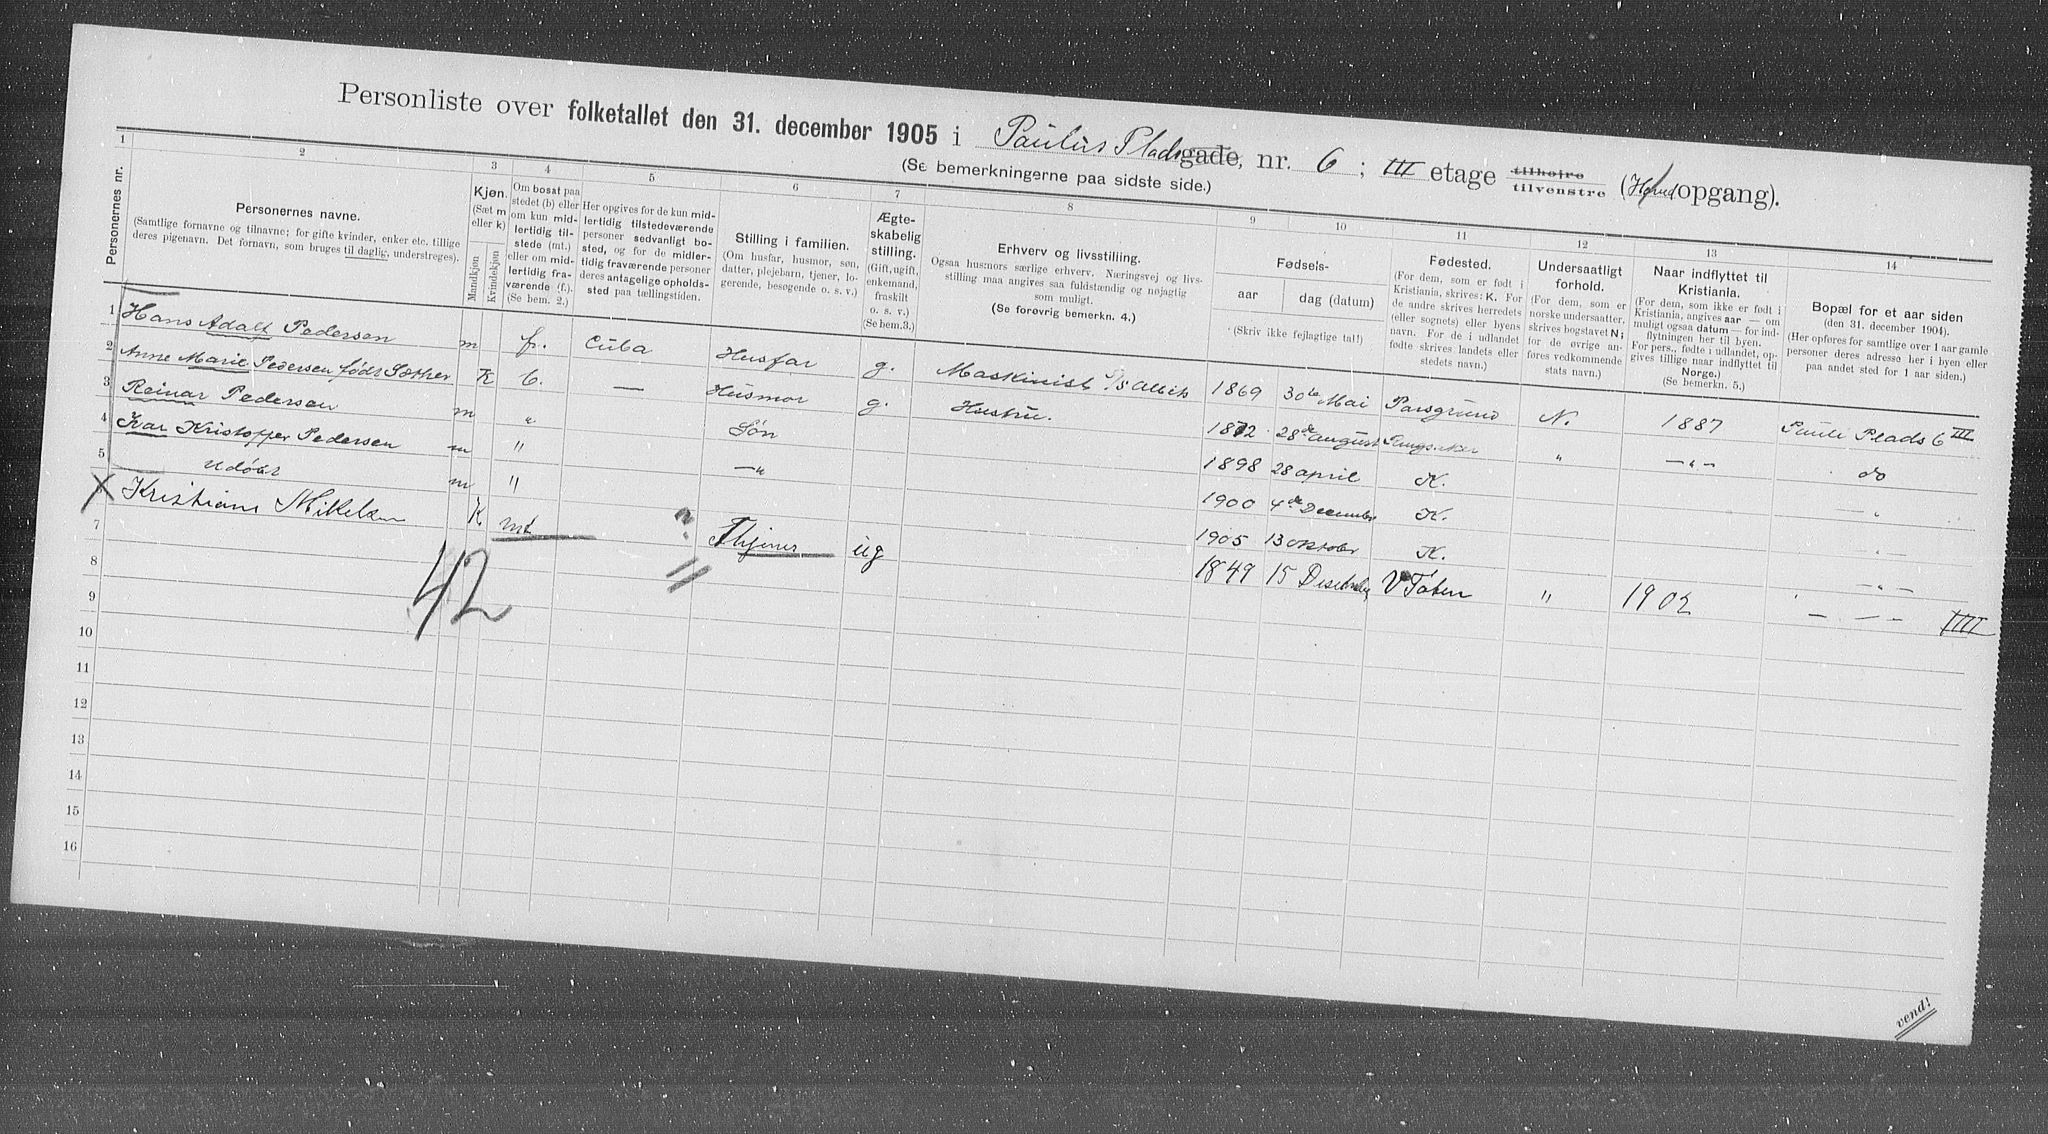 Personliste over folketallet den 31. december 1905 i Paulus Pladsgade, nr. 6; III etage tilhøjre tilvenstre (Hoved opgang).
(Se bemerkningerne paa sidste side.)
1 2 3 4 5 6 7 8 9 10 11 12 13 14
Personernes nr.
Personernes navne.
(Samtlige fornavne og tilnavne; for gifte kvinder, enker etc. tillige
deres pigenavn. Det fornavn, som bruges til daglig, understreges).
Kjøn.
(Sæt m
eller k)
Mandkjøn
Kvindekjøn
Om bosat paa
stedet (b) eller
om kun mid-
lertidig til-
stede (mt.)
eller om mid-
lertidig fra-
værende (f.).
(Se bem. 2.)
Her opgives for de kun mid-
lertidig tilstedeværende
personer sedvanlig bo-
sted, og for de midler-
tidig fraværende personer
deres antagelige opholds-
sted paa tællingstiden.
Stilling i familien.
(Om husfar, husmor, søn,
datter, plejebarn, tjener, lo-
gerende, besøgende o. s. v.)
Ægte-
skabelig
stilling.
(Gift, ugift,
enkemand,
fraskilt
o. s. v.)
(Se bem.3.)
Erhverv og livsstilling.
Ogsaa husmors særlige erhverv. Næringsvej og livs-
stilling maa angives saa fuldstændig og nøjagtig
som muligt.
(Se forøvrig bemerkn. 4.)
Fødsels-
aar
dag (datum)
(Skriv ikke fejlagtige tal!)
Fødested.
(For dem, som er født i
Kristiania, skrives: K. For
de andre skrives herredets
(eller sognets) eller byens
navn. For de i udlandet
fødte skrives landets eller
stedets navn.)
Undersaatligt
forhold.
(For dem, som er
norske undersaatter,
skrives bogstavet N;
for de øvrige an-
føres vedkommende
stats navn.)
Naar indflyttet til
Kristiania.
(For dem, som ikke er født i
Kristiania, angives aar — om
muligt ogsaa datum — for ind-
flytningen her til byen.
For pers., fødte i udlandet, op-
gives tillige naar indflyttet til
Norge.)
(Se bemerkn. 5.)
Bopæl for et aar siden
(den 31. december 1904).
(Her opføres for samtlige over 1 aar gamle
personer deres adresse her i byen eller
paa andet sted for 1 aar siden.)
1 Hans Adalf Pedersen m fr. Cuba Husfar g. Maskinist 1869 30te Mai Porsgrund N. 1887 Pauli Plads 6 III
2 Anne Marie Pedersen født Sæther K b. — Husmor g. Hustru. 1872 28de august " —"— do
3 Reinar Pedersen m " Søn 1898 28 april K. —"
4 Ivar Kristoffer Pedersen m " —" 1900 4de December K. "—
5 Udøbt m " 1905 13 oktober K. —"—
6 Kristiane Mikelsen K mt ? Thjener ug 1849 15 Desember V Toten " 1902 — — — IIII
42
7
8
9
10
11
12
13
14
15
16
vend!